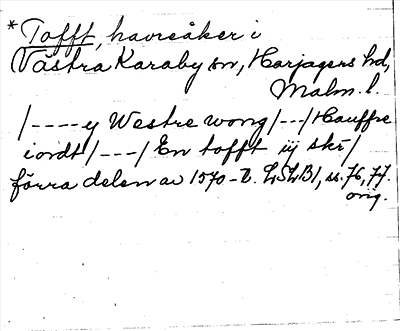 *Tofft, havreåker i
Västra Karaby sn, Harjagers hd,
Malm. l.
/----y Westre wong/---/Hauffre
iordt/---/En tofft iij skr/
förra delen av 1570-t. LSLB1, ss. 76, 77.
orig.